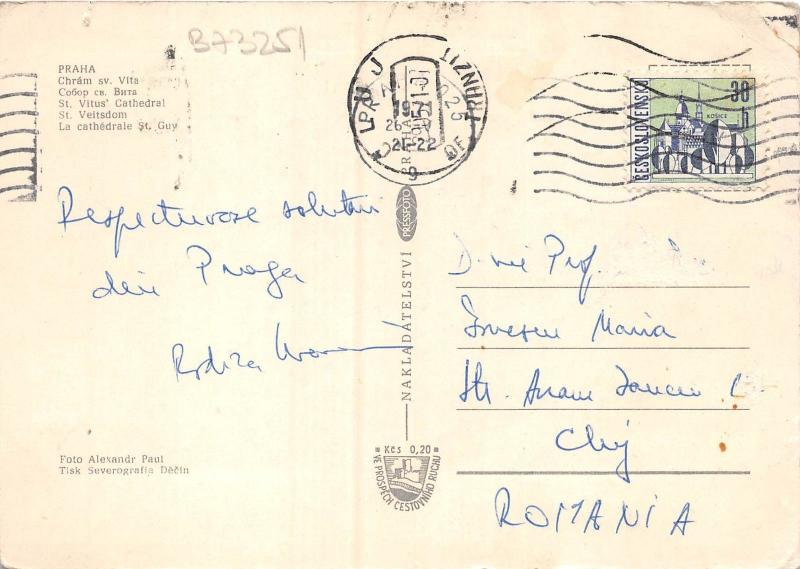 B73251
PRAHA
Chrám sv. Víta
Собор св. Вита
St. Vitus' Cathedral
St. Veitsdom
La cathédrale St. Guy
Respectuoase salutări
din Praga
Foto Alexandr Paul
Tisk Severografia Děčín
NAKLADATELSTVÍ
PRESSFOTO
PRAHA
Kčs 0,20
VE PROSPĚCH CESTOVNÍHO RUCHU
21-22
9
ČESKOSLOVENSKO
30 h
KOŠICE
Prof.
Maria
Str. Avram Iancu
Cluj
ROMANIA